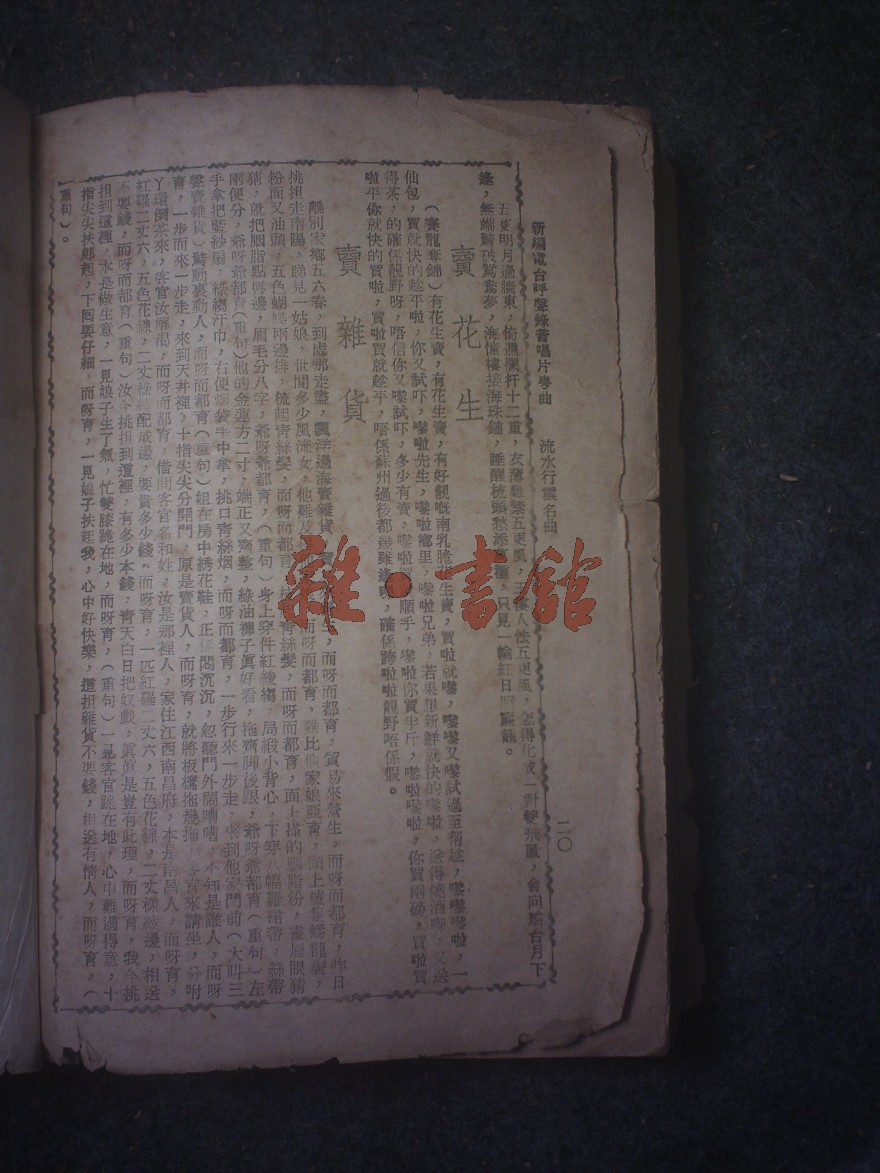 新編電台呼聲錄音唱片粵曲　流水行雲名曲　二〇
五更明月過牆東，倚遍欄杆十二重，衣薄難禁五更風，人怯五更風，怎得化成一對雙飛鳳，會向瑤台月下
逢，無端驚破鴛鴦夢，海憧樓接海珠鐘，睡醒梳頭愁添萬種，只見一輪紅日照簾籠。
賣花生
（賽龍奪錦）有花生賣，有花生賣，有好靚嘅南乳脆花生賣，買啦就嚟，嚟嚟又嚟試過至幫趁，嚟嚟嚟啦，一
仙包，買就快的趁平啦，你又試吓，嚟啦先生，嚟啦鄉里，嚟啦兄弟，若果想新鮮就快的嚟啦，送得燒酒喎，又送
得茶，的確係靚野呀，唔信你又嚟試吓，多少有賣，嚟啦順手，嚟啦你買半斤，嚟啦嚟啦，你買兩磅，買啦買
啦平你就快的買啦，買啦買就趁平，唔係蘇州過後都無難逢呀，確係誇啦啦靚野唔係假。
賣雜貨
離別家鄉五六春，到處那走盡，飄洋過海賣雜貨，生，而呀而都育，貿易來營生，而呀而都育，昨日
挑担走南陽，睇見一姑娘，世間多少風流女，他難及，而呀而都育，難比他家娘亞育，頭上梳隻蟠龍髻，
粉面又油頭，五色蝴蝶兩邊排，梳起青絲髮，而呀而都育，梳起青絲髮，而呀而都育，面上搽的胭脂粉，畫眉眼猜
猜，就把胭脂點唇邊，眉毛分八字，爺呀爺都育，（重句）身上穿件紅綾襖，局緞小背心，下穿八幅羅裙帶，絲帶
兩便分，爺呀爺都育（重句）他的金蓮方二寸，端正又齊整，綠油褲子眞好看，拖齊脚後跟，爺呀爺都育（重句）左
手拿把藍紗扇，綠綢汗巾，右便烟袋手中拿，挑口青絲烟，而呀而都育，一步行來一步走，來到他家門前（大叫三
聲賣雜貨）驚動裏動人，而呀而都育（重句）姐在房中綉花鞋，正係悶沉沉，忽聽門外鬧嘈嘈，不知是誰人，而呀
育，一步而來一步走，來到天井裡，十指尖尖分開門，原是賣貨人，而呀育，就將板櫈拖幾拖，客官來請坐，分咐
丫環倒茶來，客官汝解渴，而呀而都育，借問客官名和姓，汝是那裡人，家住江西南昌府，本是南昌人，而呀育，
紅羅二丈六，五色花線，二丈綠綾配成邊，要賣多少錢，而呀育，一匹紅羅二丈六，五色花線，二丈樣綾邊，相送
不要錢，而呀而都育（重句）汝今挑担到這裡，有多少本錢，青天白日把奴戲，眞原是豈有此理，而呀育，我今挑
担到這裡，本是做生意，一見娘子生了氣，忙雙膝跪在地，而呀育，（重句）一見客官跪在地，心中難過得意，十
指尖尖扶郎起，下囘要仔細，而呀育，一見娘子扶起我，心中好快樂，這担雜貨不要錢，相送有情人，而呀育，（
重句）。
雜·書館